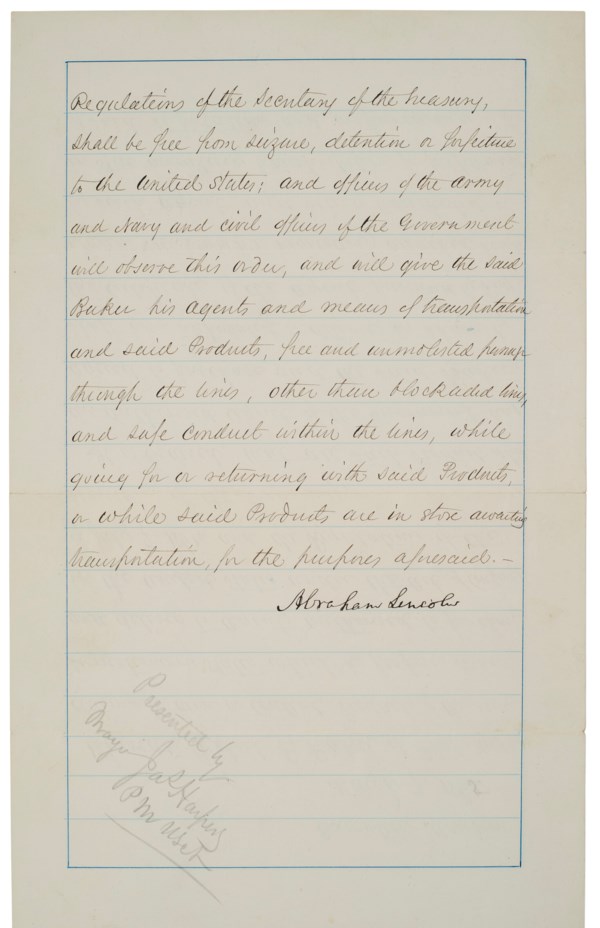 Regulations of the Secretary of the Treasury,
shall be free from seizure, detention or forfeiture
to the United States; and officers of the Army
and Navy and civil officers of the Government
will observe this order, and will give the said
Baker his agents and means of transportation
and said Products, free and unmolested passage
through the lines, other than blockaded lines,
and safe conduct within the lines, while
going for or returning with said Products,
or while said Products are in store awaiting
transportation, for the purposes aforesaid.—
Abraham Lincoln
Presented by
Major Jas Harper
PM USA